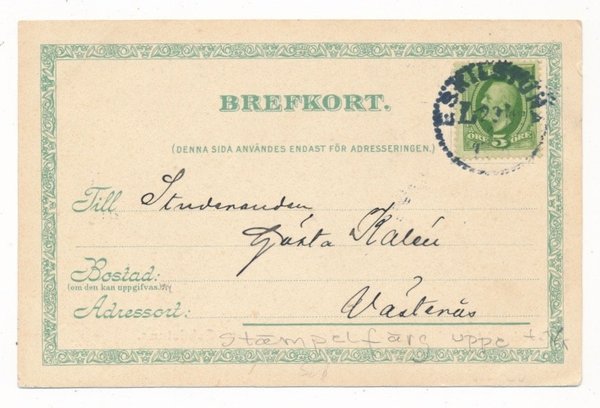 BREFKORT.
(DENNA SIDA ANVÄNDES ENDAST FÖR ADRESSERINGEN.)
ESKILSTUNA
ÖRE 5 ÖRE
Till Studeranden
Gösta Kalén
Bostad:
(om den kan uppgifvas)
Adressort: Västerås
Stämpelfärg uppe